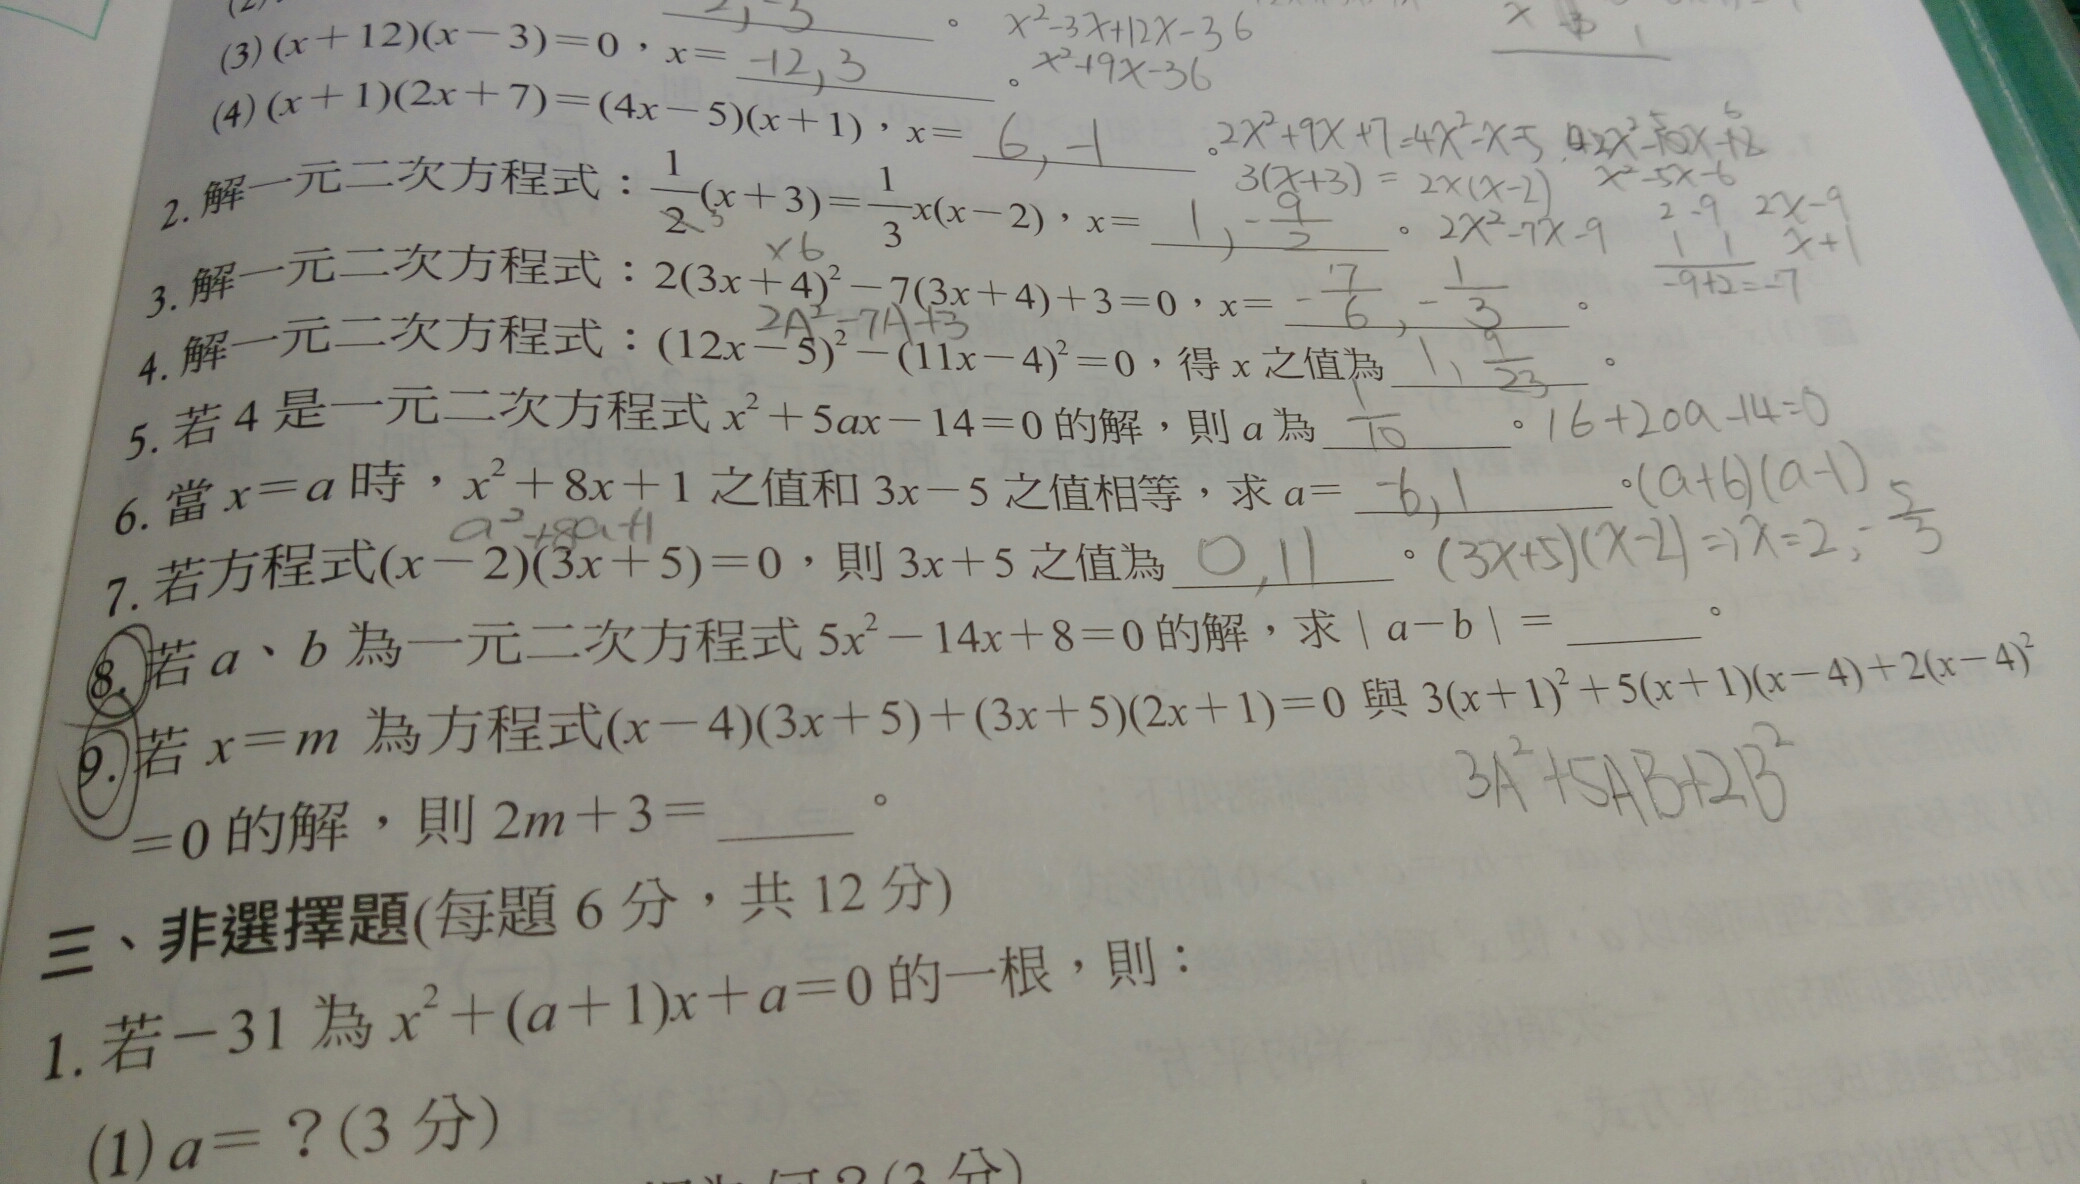 2, -3
(3) (x+12)(x-3)=0，x= -12, 3 。 x²-3x+12x-36
x²+9x-36
(4) (x+1)(2x+7)=(4x-5)(x+1)，x= 6, -1 。 2x²+9x+7=4x²-x-5
3(x+3) = 2x(x-2) x²-5x-6
2. 解一元二次方程式：1/2(x+3)=1/3x(x-2)，x= 1, -9/2 。 2x²-7x-9
2 -9 2x-9
1 1 x+1
-9+2=-7
x6
3. 解一元二次方程式：2(3x+4)²-7(3x+4)+3=0，x= -7/6, -1/3 。
2A²-7A+3
4. 解一元二次方程式：(12x-5)²-(11x-4)²=0，得 x 之值為 1, 9/23 。
5. 若 4 是一元二次方程式 x²+5ax-14=0 的解，則 a 為 -1/10 。 16+20a-14=0
6. 當 x=a 時，x²+8x+1 之值和 3x-5 之值相等，求 a= -6, 1 。 (a+6)(a-1)
a²+8a+1
7. 若方程式(x-2)(3x+5)=0，則 3x+5 之值為 0, 11 。 (3x+5)(x-2)⇒x=2, -5/3
8. 若 a、b 為一元二次方程式 5x²-14x+8=0 的解，求 | a-b | = ＿＿ 。
9. 若 x=m 為方程式(x-4)(3x+5)+(3x+5)(2x+1)=0 與 3(x+1)²+5(x+1)(x-4)+2(x-4)²
3A²+5AB+2B²
=0 的解，則 2m+3= ＿＿ 。
三、非選擇題(每題 6 分，共 12 分)
1. 若-31 為 x²+(a+1)x+a=0 的一根，則：
(1) a=？(3 分)
何？(3 分)